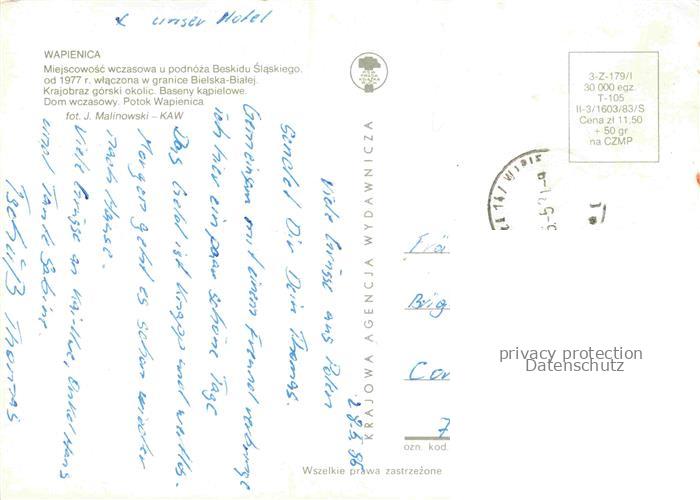 x unser Hotel
WAPIENICA
Miejscowość wczasowa u podnóża Beskidu Śląskiego,
od 1977 r. włączona w granice Bielska-Białej.
Krajobraz górski okolic. Baseny kąpielowe.
Dom wczasowy. Potok Wapienica
fot. J. Malinowski – KAW
28.5.86
Viele Grüsse aus Polen
sendet Dir Dein Thomas.
Gemeinsam mit einem Freund verbringe
ich hier ein paar schöne Tage
Das Geld ist knapp und wertlos.
Morgen geht es schon wieder
nach Hause.
Viele Grüsse an Onkel Hans
und Tante Sabine.
Tschüß Thomas
KRAJOWA AGENCJA WYDAWNICZA
3-Z-179/I
30 000 egz.
T-105
II-3/1603/83/S
Cena zł 11,50
+ 50 gr
na CZMP
Brig
ozn. kod.
privacy protection
Datenschutz
Wszelkie prawa zastrzeżone